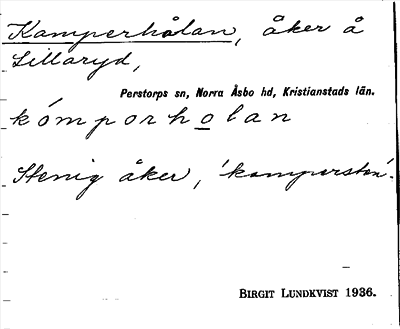 Kamperhålan, åker å
Lillaryd,
Perstorps sn, Norra Åsbo hd, Kristianstads län.
kómporholan
Stenig åker, 'kampersten'.
BIRGIT LUNDKVIST 1936.